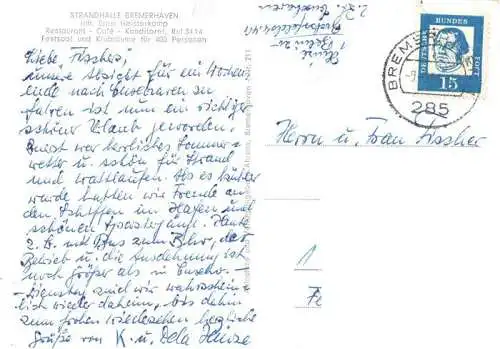 STRANDHALLE BREMERHAVEN
Inh. Ernst Geisterkamp
Restaurant - Café - Konditorei, Ruf 3414
Festsaal und Klubräume für 400 Personen
Liebe Fischers,
unsere Absicht für ein Wochen-
ende nach Cuxhaven zu
fahren ist nun ein richtiger
schöner Urlaub geworden.
Zuerst war herrliches Sommer-
wetter u. schön für Strand
und wattlaufen. Als es kühler
wurde hatten wir Freude an
den Schiffen im Hafen und
schönen Spaziergänge. Heute
z.B. mit Bus zum Bhv, der
Betrieb u. die Ausdehnung ist
noch größer als in Cuxhv. -
Dienstag sind wir wahrschein-
lich wieder daheim, bis dahin
zum frohen wiedersehen herzliche
Grüße von K. u. Dela Heinze
Heinze
1 Berlin 20
z.Zt. Cuxhaven
DEUTSCHE BUNDESPOST
15
BREMERHAVEN
285
Herrn u. Frau Fischer
1